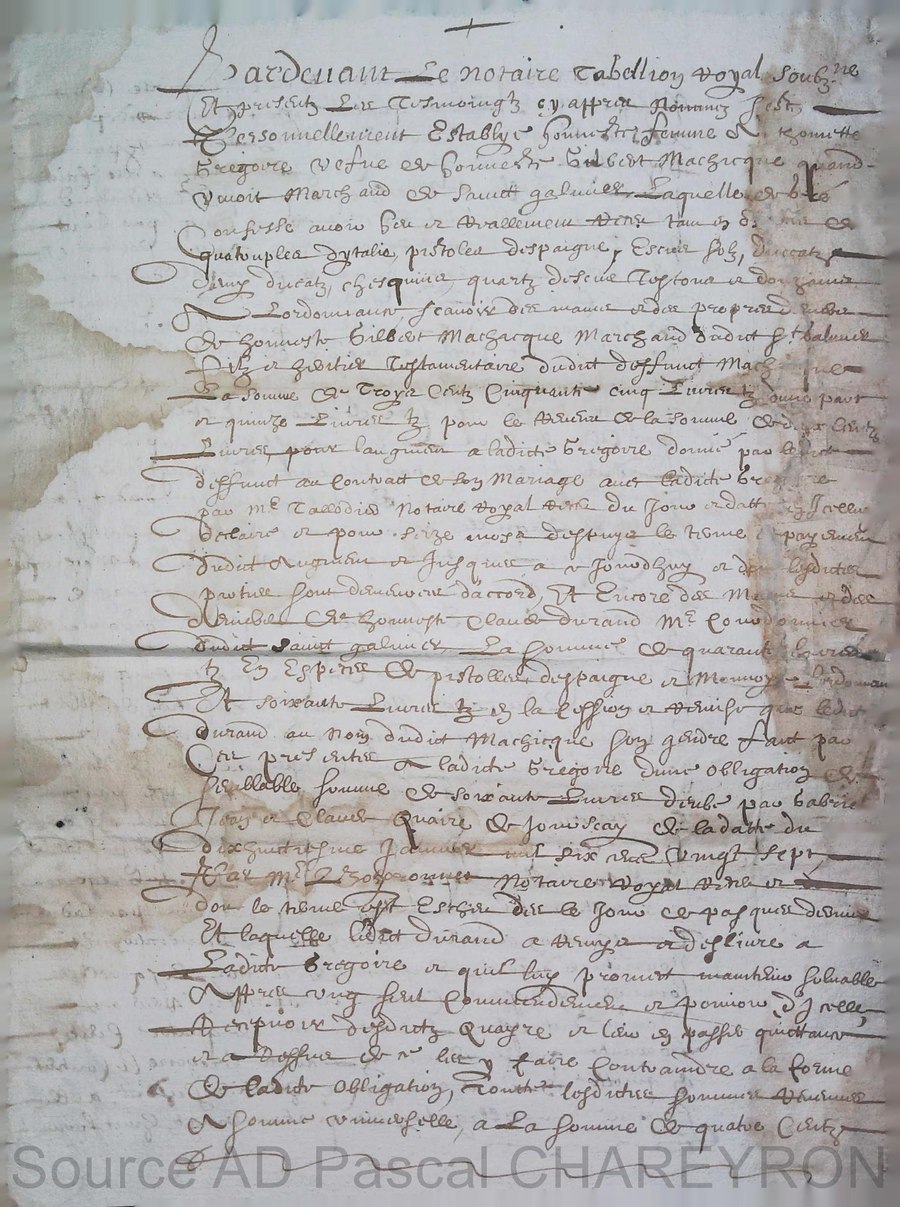 Pardevant Le notaire Tabellion Royal soubz.ne
Et presentz Les Tesmoingtz cy appres Nommez s'est
Personnellement Establye honneste femme Anthonette
Gregoire vefve de honneste Gilbert Machicque quand
vivoit Marchand de Sainct galmier Laquelle de gré
Confesse avoir heu et Reallement Receu tant en
quatouples dytalie pistoles despaigne, Escus solz, duccatz
demy ducatz, quartz descus Testons et douzains
A Lordonnance, scavoir des mains et des propres deniers
de honneste Gilbert Machicque Marchand dudit St Galmier
filz et heritier Testamentaire dudit deffunct Machicque
La somme de Troys Centz Cinquante cinq Livres tz dune part
et quinze Livres tz pour le Revenu de la somme de deux Centz
Livres, pour laugment a ladicte Gregoire donné par ledict
deffunct au Contract de son Mariage avec ladicte Gregoire
par Me Notaire Royal Receu du Jour et datte en Jcelluy
declairé et pour seize moys despuys le terme payement
dudit Augment et Jusques a ce Jourdhuy et dont lesdictes
parties sont demeurees daccord, Et Encore des Mains et des
deniers de honneste Claude durand Me Courdonnier
dudit Sainct galmier La somme de quarante Livres
tz En Especes de pistolles despaigne et Monnoye
Et soixante Livres tz en la Cession et Remise que ledit
durand au Nom dudit Machicque son gendre faict par
Ces presentes A ladicte Gregoire dune Obligation de
semblable somme de soixante Livres deube par
Jean et Claude Quaire de de la datte du
dixhuictiesme Janvier mil six centz vingt sept
Par Me Notaire Royal Receu et
dont le terme est Escheu des le Jour de pasques dernier
Et laquelle ledict durand a Remys et deslivré a
Ladicte Gregoire et quil luy promet maintenir solvable
Appres ung seul Commandement et pouvoir dJcelle
Recepvoir desdictz Quayre et leur en passer quittance
et a Deffault de ce les y faire Contraindre a la forme
de ladicte Obligation, Touttes lesdictes sommes Revennes
A somme universelle, a La somme de quatre Centz
Source AD Pascal CHAREYRON